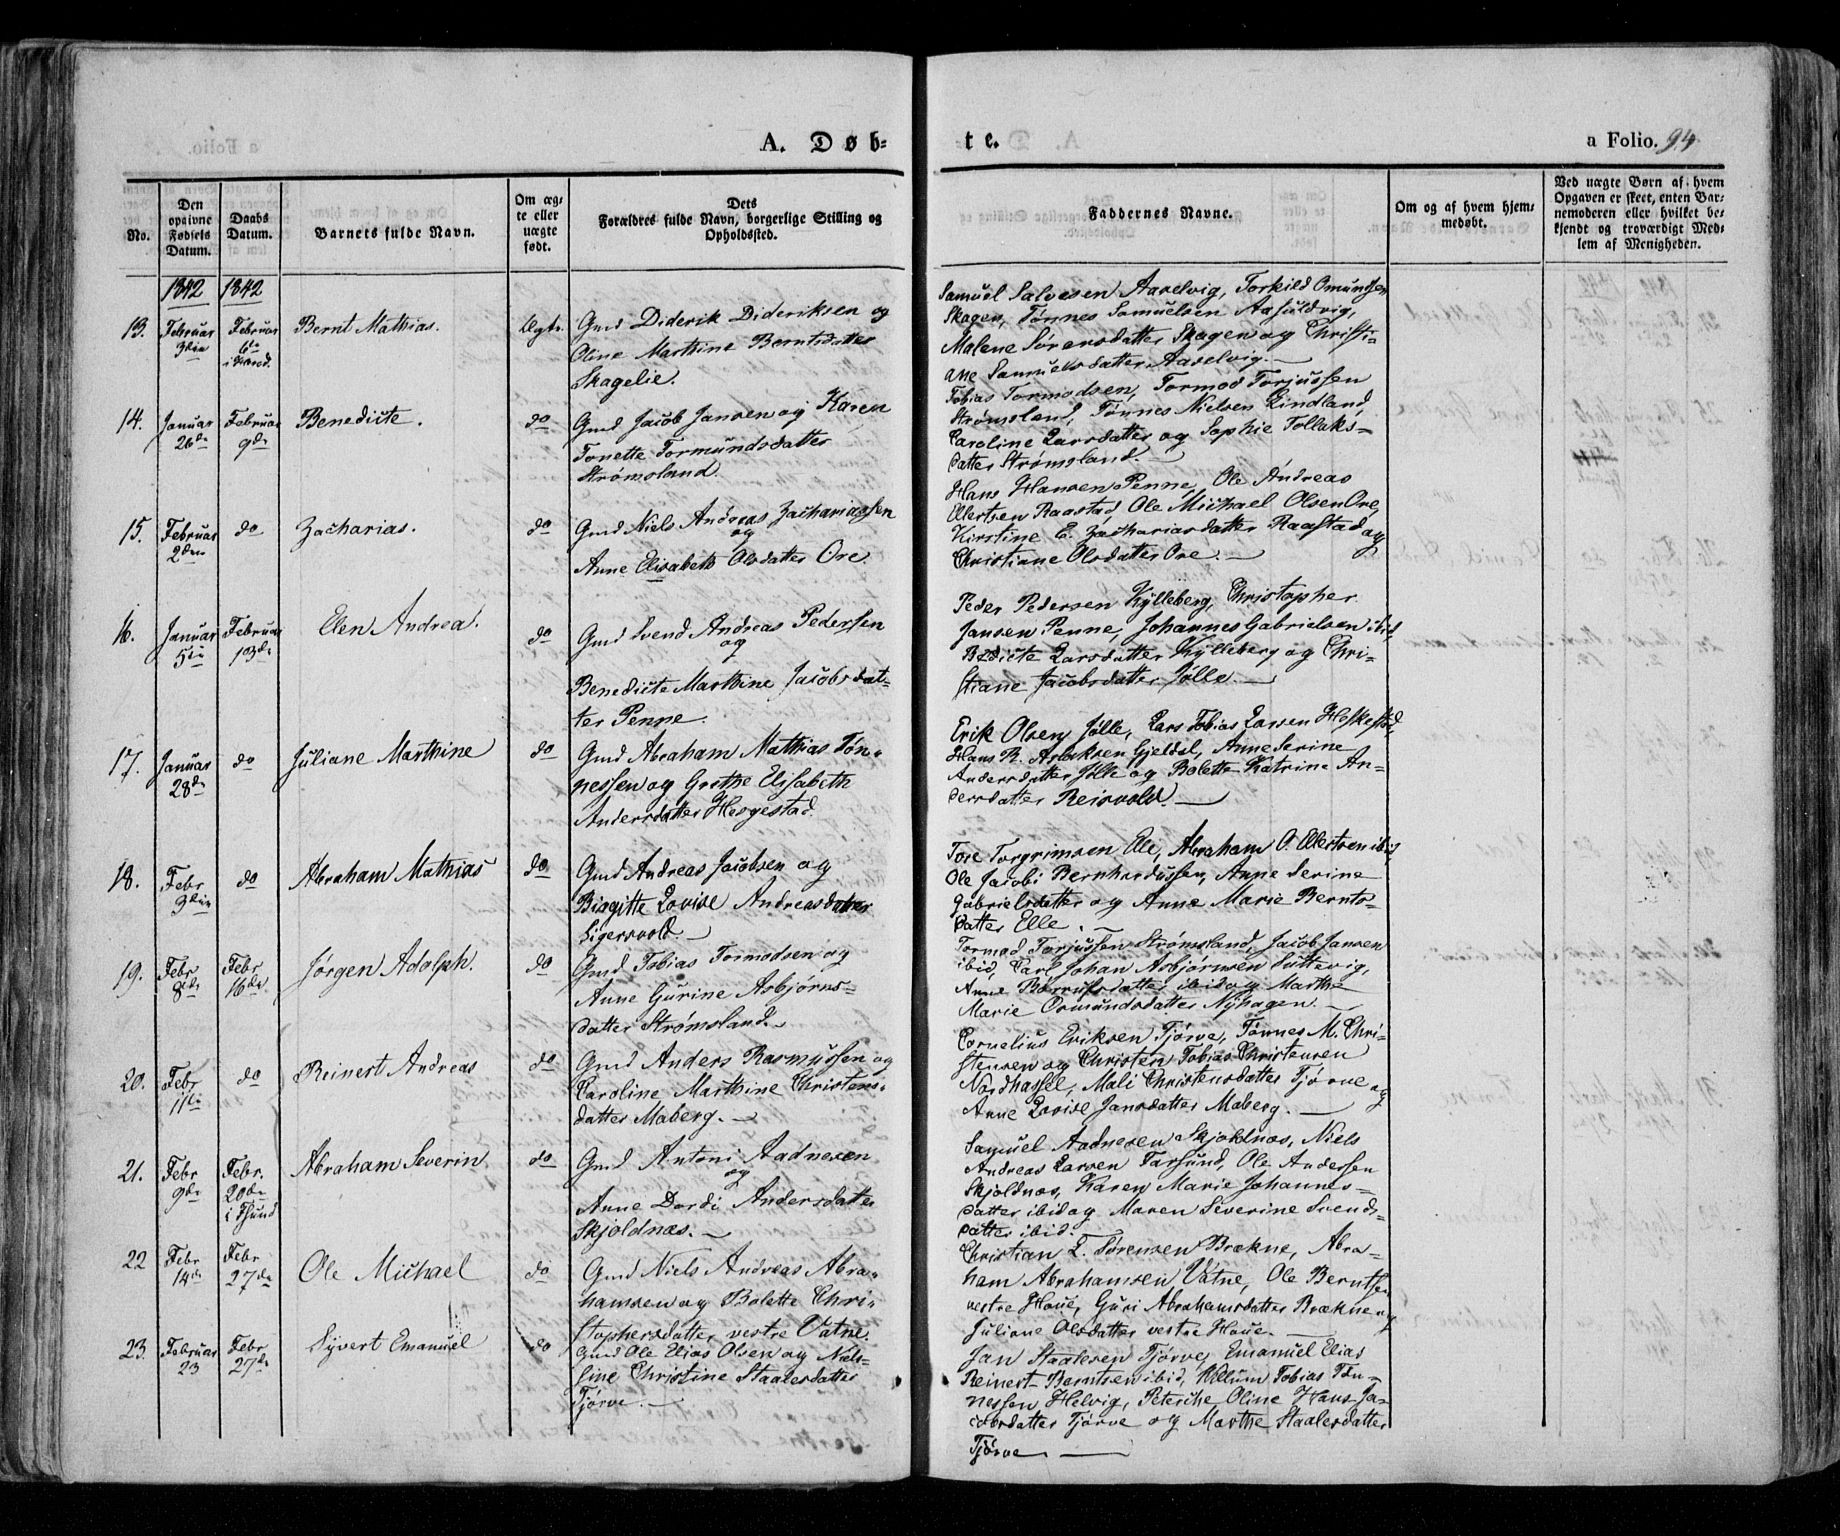 A. Døb-
te.
a Folio. 94
No.
Den
opgivne
Fødsels
Datum.
Daabs
Datum.
Barnets fulde Navn.
Om æg-
te eller
uægte
født.
Dets
Forældres fulde Navn, borgerlige Stilling og
Opholdssted.
Faddernes Navne.
Om og af hvem hjem-
medøbt.
Ved uægte Børn af hvem
Opgaven er skeet, enten Bar-
nemoderen eller hvilket be-
kjendt og troværdigt Med-
lem af Menigheden.
1842 1842
13. Februar 3die
Februar 6te
Bernt Mathias.
Ægte.
Gmd Diderik Dideriksen og
Oline Marthine Berntsdatter
Skagelie.
Samuel Salvesen Aaselvig, Torkild Omundsen
Skagen, Tønnes Samuelsen
Malene Sørensdatter Skagen og Christi-
ane Samuelsdatter Aaselvig.—
14. Januar 26de
Februar 9de
Benedicte.
do
Gmd Jacob Jansen og Karen
Tonette Tormundsdatter
Strømsland.
Tobias Tormodsen, Tormod Torjussen
Strømsland, Tønnes Nielsen Lindland,
Caroline Larsdatter og Sophie Tollaks-
datter Strømsland.—
15. Februar 2den
do
Zacharias.
do
Gmd Niels Andreas Zachariassen
og
Anne Elisabeth Olsdatter Ore.
Hans Hansen Penne, Ole Andreas
Ellertsen Raastad, Ole Michael Olsen Ore,
Kirstine E. Zachariasdatter Raastad og
Christiane Olsdatter Ore.—
16. Januar 5te
Februar 13de
Elen Andrea.
do
Gmd Svend Andreas Pedersen
og
Benedicte Marthine Jacobsdat-
ter Penne.
Peder Pedersen Kylleberg, Christopher
Jansen Penne, Johannes Gabrielsen ibid,
Larsdatter Kylleberg og Chri-
stiane Jacobsdatter Jølle.—
17. Januar 28de
do
Juliane Marthine
do
Gmd Abraham Mathias Tøn-
nessen og Grethe Elisabeth
Andersdatter Hesgestad.
Erik Olsen Jølle, Lars Tobias Larsen Heskestad,
Hans R. Aslaksen Gjeldsl, Anne Serine
Andersdatter Jølle og Bolette Katrine An-
dersdatter Reisvold.—
18. Febr 3die
do
Abraham Mathias
do
Gmd Andreas Jacobsen og
Birgitte Lovise Andreasdatter
Sigersvold.—
Tore Torgrimsen Elle, Abraham O. Ellertsen ibid,
Ole Jacobi Bernhardussen, Anne Serine
Gabrielsdatter og Anne Marie Bernts-
datter Elle.—
19. Febr 8de
Febr 16de
Jørgen Adolph.
do
Gmd Tobias Tormodsen og
Anne Gurine Asbjørns-
datter Strømsland.—
Tormod Torjussen Strømsland, Jacob Jansen
ibid, Carl Johan Asbjørnsen Luttevig,
Anne datter ibid og Marthe
Marie Osmundsdatter Nyhagen.—
20. Febr 11te
do
Reinert Andreas
do
Gmd Anders Rasmussen og
Caroline Marthine Christens-
datter Maberg.—
Cornelius Eriksen Tjørve, Tønnes M. Chri-
stensen og Christen Tobias Christensen
Nordhassel, Mali Christensdatter Tjørve og
Anne Lovise Jansdatter Maberg.—
21. Febr 9de
Febr. 20de
i Fsund
Abraham Severin
do
Gmd Antoni Aadnesen
og
Anne Dordi Andersdatter
Skjoldnæs.—
Samuel Aadnesen Skjoldnæs, Niels
Andreas Larsen Farsund, Ole Andersen
Skjoldnæs, Karen Marie Johannes-
datter ibid og Maren Severine Svends-
datter ibid.
22 Febr 14de
Febr 27de
Ole Michael
do
Gmd Niels Andreas Abra-
hamsen og Bolette Chri-
stophersdatter vestre Vatne.
Christian T. Sørensen Brækne, Abra-
ham Abrahamsen Vatne, Ole Berntsen
vestre Houe, Guri Abrahamsdatter Brækne og
Juliane Olsdatter vestre Houe.—
23. Februar 23
Febr 27de
Syvert Emanuel
do
Gmd Ole Elias Olsen og Niels-
sine Christine Staalesdatter
Tjørve.—
Jan Staalesen Tjørve, Emanuel Elias
Reinert Berntsen ibid, Villum Tobias Tøn-
nessen Helvig, Petersche Oline Hans Ja-
cobsdatter Tjørve og Marthe Staalesdatter
Tjørve—